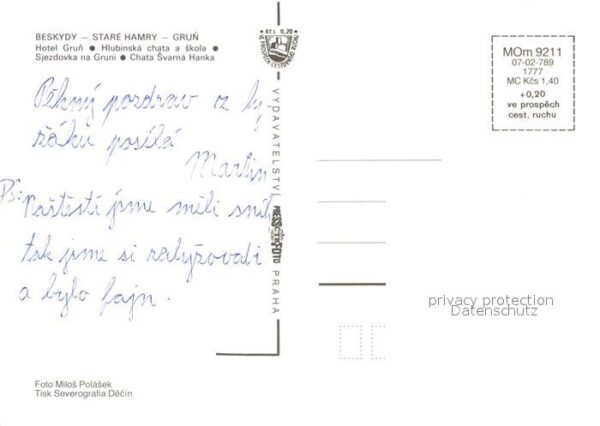 BESKYDY – STARÉ HAMRY – GRUŇ
Hotel Gruň ● Hlubinská chata a škola ●
Sjezdovka na Gruni ● Chata Švarná Hanka
Kčs 0,20
VE PROSPĚCH CESTOVNÍHO RUCHU
MOm 9211
07-02-789
1777
MC Kčs 1,40
+0,20
ve prospěch
cest. ruchu
Pěkný pozdrav z ly-
žáku posílá
Martin
PS: Naštěstí jsme měli sníh,
tak jsme si zalyžovali
a bylo fajn.
VYDAVATELSTVÍ PRESSFOTO PRAHA
privacy protection
Datenschutz
Foto Miloš Polášek
Tisk Severografia Děčín